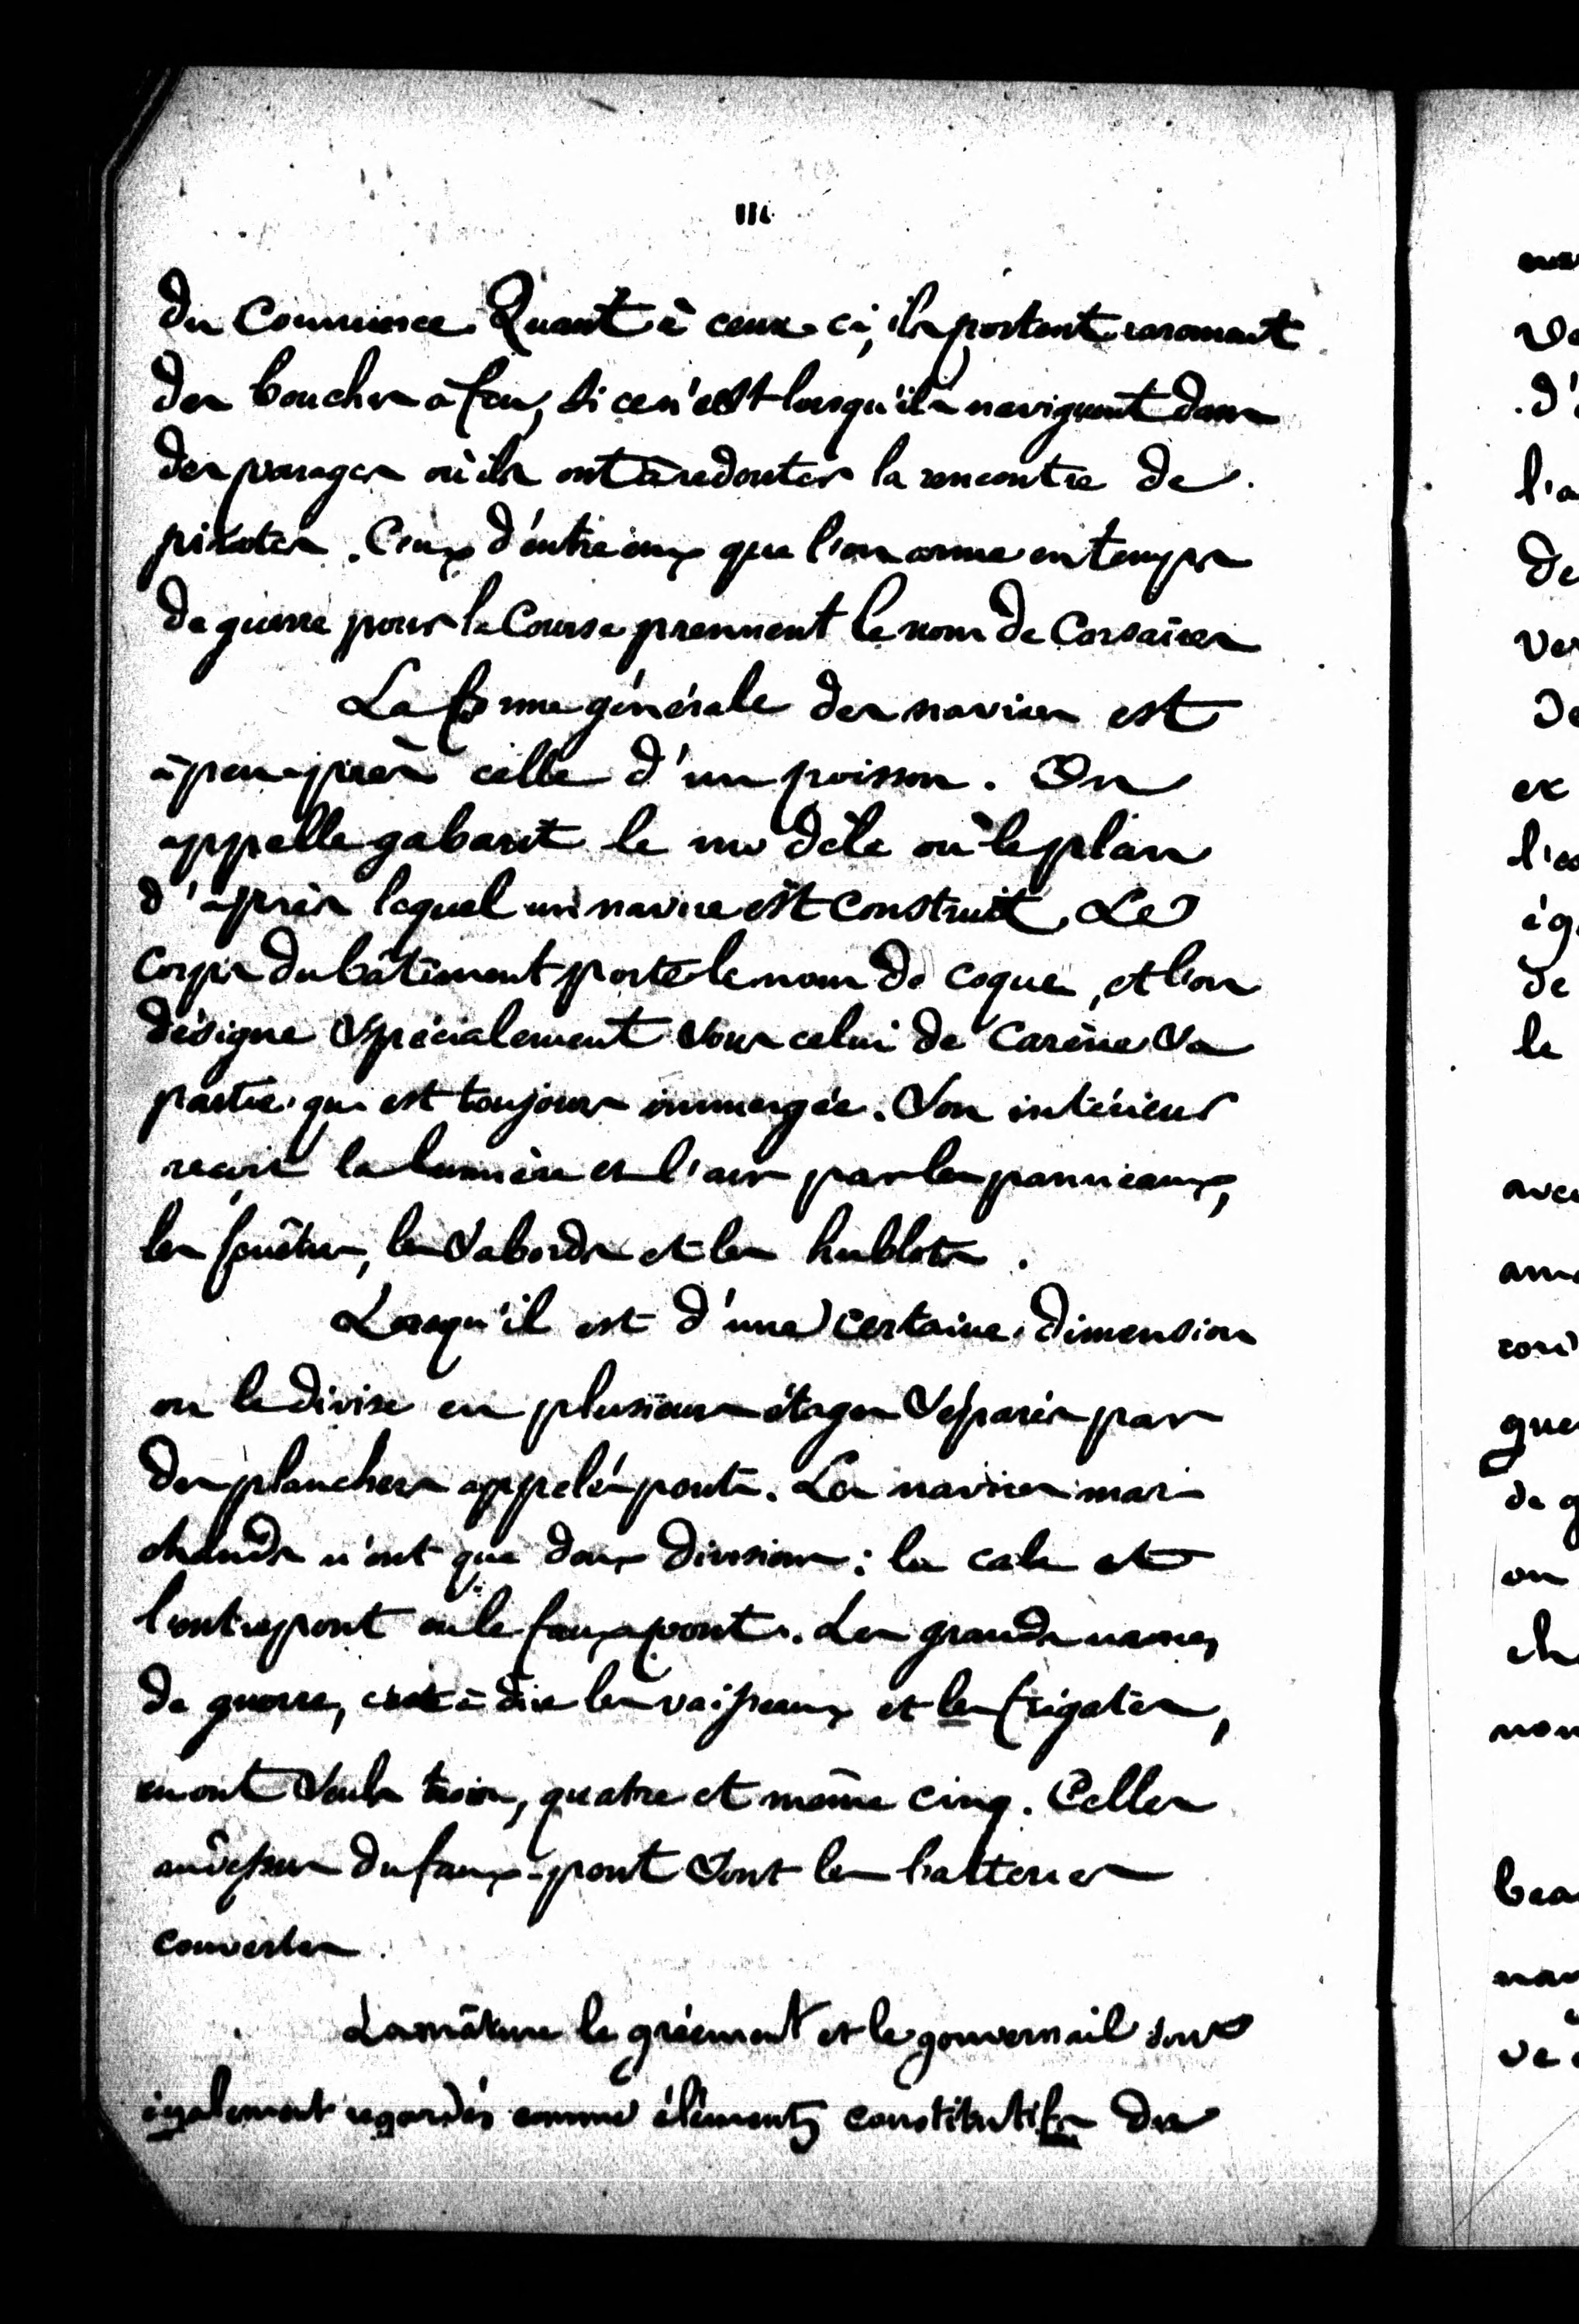 III
du Commerce. Quant à ceux-ci, ils portent rarement
des bouches à feu, si ce n'est lorsqu'ils naviguent dans
des parages où ils ont à redouter la rencontre de
pirates. Ceux d'entre eux que l'on arme en temps
de guerre pour la Course prennent le nom de Corsaires
La forme générale des navires est
à peu-près celle d'un poisson. On
appelle gabarit le modèle où le plan
d'après lequel un navire est construit. Le
Corps du bâtiment porte le nom de coque, et l'on
désigne spécialement sous celui de Carène sa
partie qui est toujours immergée. Son intérieur
reçoit la lumière et l'air par les panneaux,
les fenêtres, les sabords et les hublots.
Lorsqu'il est d'une certaine dimension
on le divise en plusieurs étages séparés par
des planchers appelés ponts. Les navires mar-
chands n'ont que deux divisions : la cale et
l'entrepont ou le faux-pont. Les grands navires
de guerre, c'est à dire les vaisseaux et les frégates,
en ont seuls trois, quatre et même cinq. Celles
au dessus du faux-pont sont les batteries
couvertes.
La mâture le gréement et le gouvernail sont
également regardés comme éléments constitutifs du
l'a
de
de
le